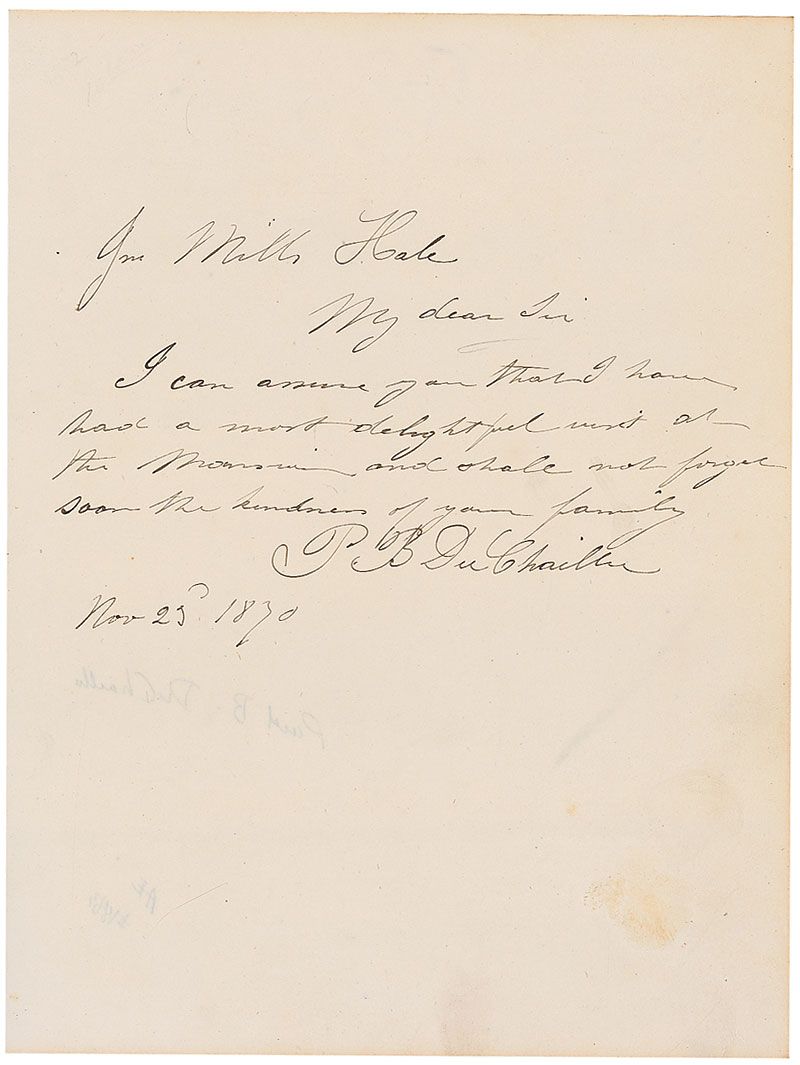 Jno Mills Hale
My dear Sir
I can assure you that I have
had a most delightful visit at
the Mansion and shale not forget
soon the kindness of your family
P B Du Chaillu
Nov 23d 1870
Paul B. Du Chaillu